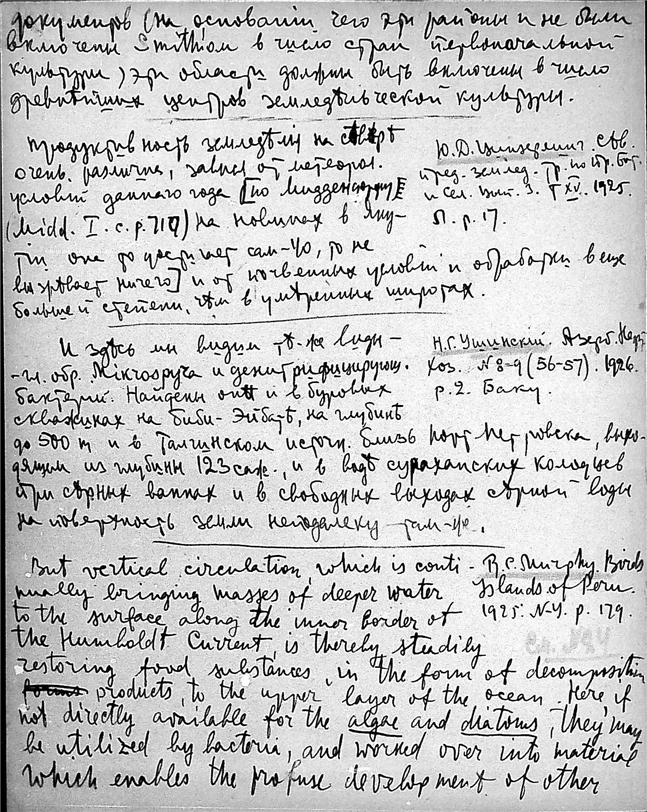 документов (на основании чего эти районы и не были
включены Smithом в число стран первоначальной
культуры) эти области должны быть включены в число
древнѣйших центров земледѣльческой культуры.
Продуктивность земледѣлия на сѣверѣ
очень различна, завися от метеорол.
условий данного года [по Миддендорфу
(Midd. I. c. p. 717) на новинах в Яку-
тии она то достигает сам-40, то не
вызрѣвает ничего] и от почвенных условий и обработки в еще
большей степени, чѣм в умѣренных широтах.
Ю.Д. Цинзерлинг. Сѣв.
пред. землед. Тр. по Пр. Бот.
и Сел. XV. 1925.
Л. p. 17.
И здѣсь мы видим тѣ-же виды-
Микроспира и денитрифицирующ.
бактерий. Найдены они и в буровых
скважинах на Биби-Эйбатѣ, на глубинѣ
до 500 m и в Талгинском источн. близь Порт Петровска, выхо-
дящим из глубины 123 саж., и в водѣ сураханских колодцев
при сѣрных ваннах и в свободных выходах сѣрной воды
на поверхность земли неподалеку там-же.
Н.Г. Ушинский. Азерб. Нефт.
Хоз. N 8-9 (56-57). 1926.
p. 2. Баку.
But vertical circulation, which is conti-
nually bringing masses of deeper water
to the surface along the inner border of
the Humboldt Current, is thereby steadily
restoring food substances, in the form of decomposition
products, to the upper layer of the ocean. Here, if
not directly available for the algae and diatoms, they may
be utilized by bacteria, and worked over into material
which enables the profuse development of other
R.C. Murphy. Birds
Islands of Peru.
1925. N.Y. p. 179.